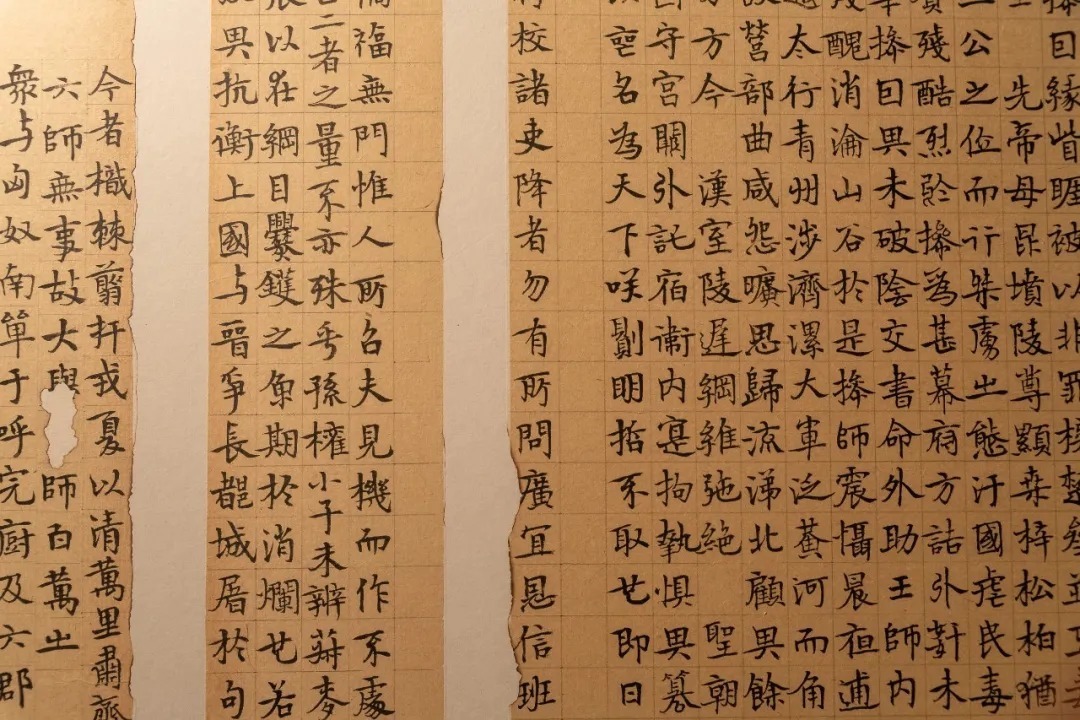 囙緣眥睚被以非罪榜楚參並五
先帝母昆墳陵尊顯桒梓松柏猶
公之位而行桀虜之態汙國虐民毒
殘酷烈於操為甚幕府方詰外姧未
操囙其未破陰交書命外助王師內
醜消淪山谷於是操師震慴晨夜逋
太行青州涉濟漯大軍泛黃河而角
營部曲咸怨曠思歸流涕北顧其餘
方今 漢室陵遲綱維弛絕 聖朝
守宮闕外託宿衛內寔拘執懼其篡
喪名為天下咲則明哲不取也即日
校諸吏降者勿有所問廣宜恩信班
福無門惟人所召夫見機而作不處
二者之量不亦殊乎孫權小子未辨菽麥
以在綱目爨鑊之魚期於消爛也若
異抗衡上國與晉爭長都城屠於句
今者枳棘翦扞戎夏以清萬里肅齊
六師無事故大舉 師百萬之
眾與匈奴南單于呼完廚及六郡